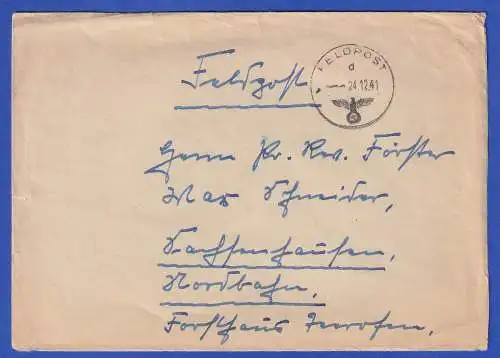 FELDPOST
d
24.12.41
Feldpost.
Herrn Pr. Rev. Förster
Max Schneider,
Sachsenhausen,
Nordbahn,
Forsthaus